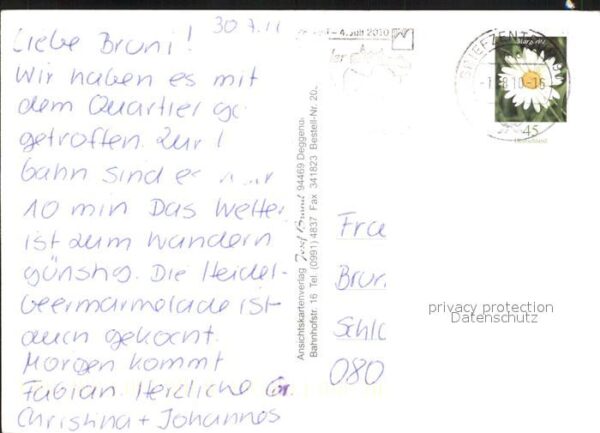 30.7.11
Liebe Bruni!
Wir haben es mit
dem Quartier
getroffen. Zur
bahn sind es
10 min Das Wetter
ist zum Wandern
günstig. Die Heidel-
beermarmelade ist
auch gekocht.
Morgen kommt
Fabian. Herzliche Gr.
Christina + Johannes
4. Juli 2010
BRIEFZENTRUM
10-16
45
Deutschland
Ansichtskartenverlag Josef Brunner 94469 Deggendo
Bahnhofstr. 16 Tel (0991) 4837 Fax 341823 Bestell-Nr. 20
Fra
Brun
Schl
080
privacy protection
Datenschutz